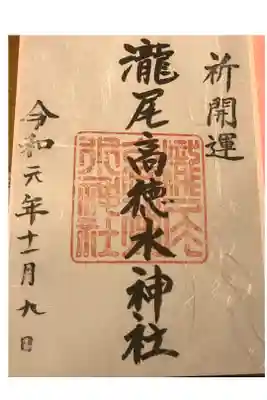 祈開運
瀧尾高徳水神社
令和元年十一月九日